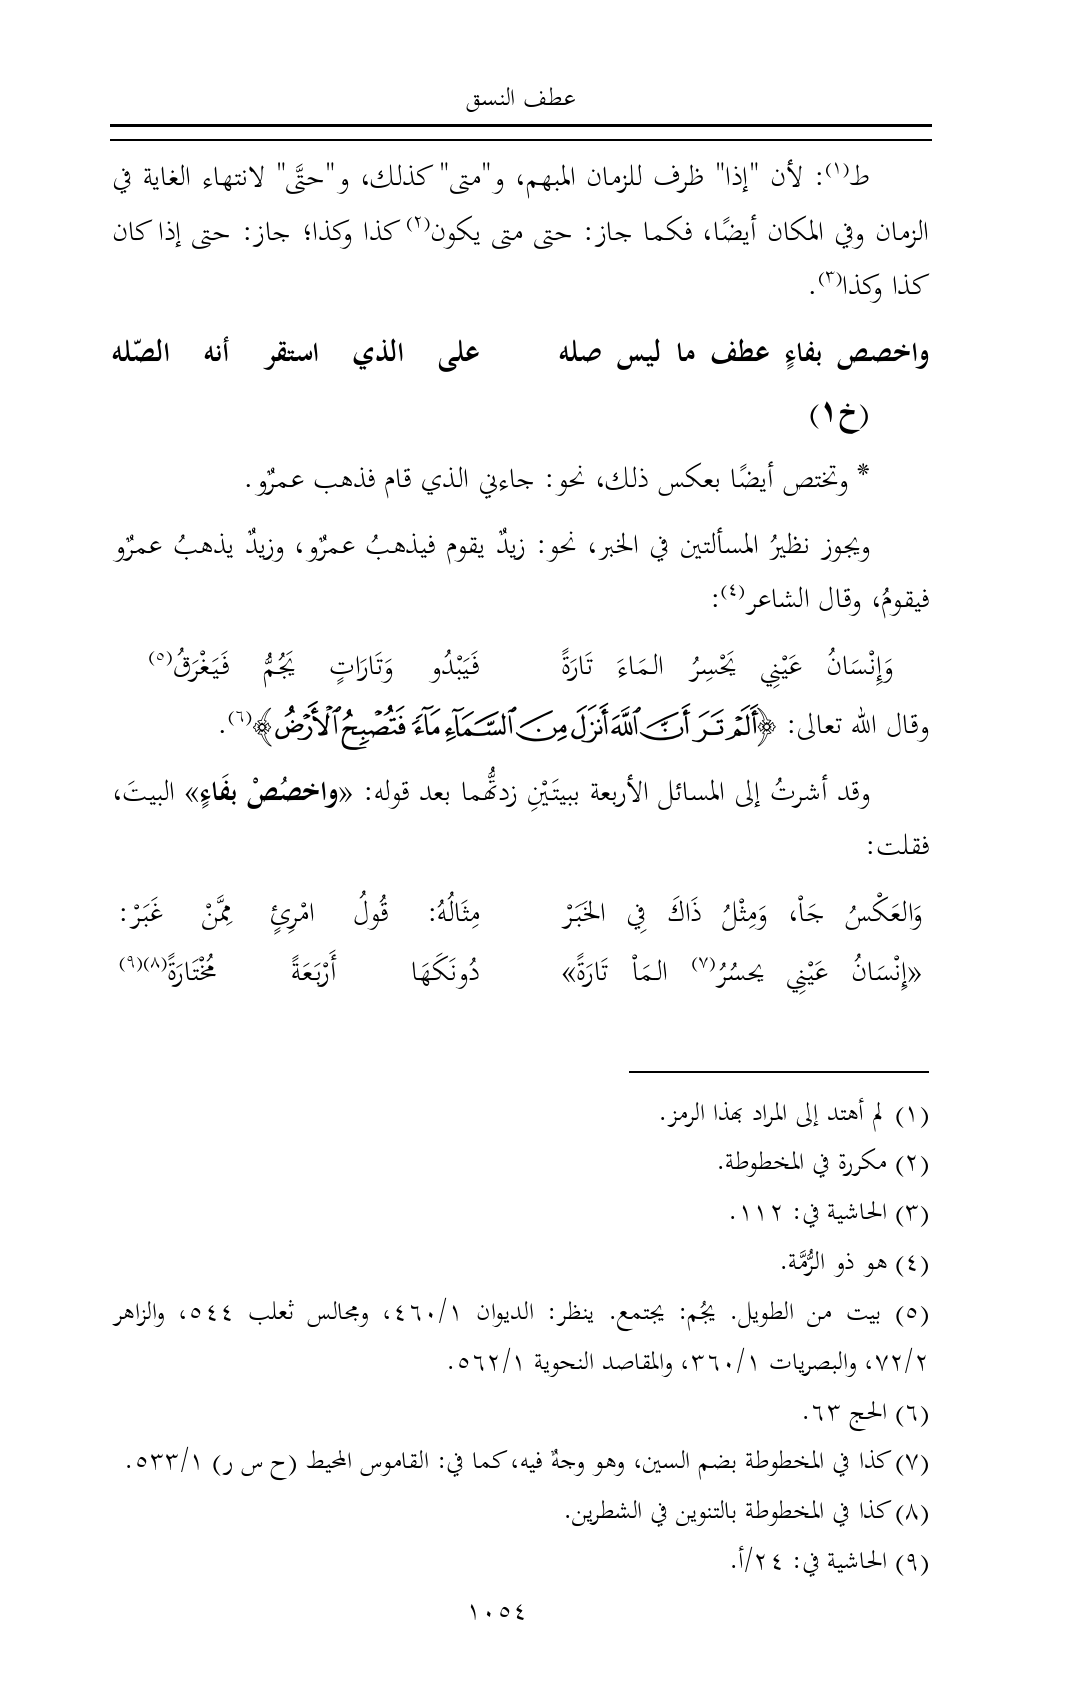 عطف النسق
ط(١): لأن "إذا" ظرف للزمان المبهم، و"متى" كذلك، و"حتَّى" لانتهاء الغاية في
الزمان وفي المكان أيضًا، فكما جاز: حتى متى يكون(٢) كذا وكذا؛ جاز: حتى إذا كان
كذا وكذا(٣).
واخصص بفاءٍ عطف ما ليس صله على الذي استقر أنه الصّله
(خ١)
* وتختص أيضًا بعكس ذلك، نحو: جاءني الذي قام فذهب عمرٌو.
ويجوز نظيرُ المسألتين في الخبر، نحو: زيدٌ يقوم فيذهبُ عمرٌو، وزيدٌ يذهبُ عمرٌو
فيقومُ، وقال الشاعر(٤):
وَإِنْسَانُ عَيْنِي يَحْسِرُ المَاءَ تَارَةً فَيَبْدُو وَتَارَاتٍ يَجُمُّ فَيَغْرَقُ(٥)
وقال الله تعالى: ﴿أَلَمْ تَرَ أَنَّ اللَّهَ أَنزَلَ مِنَ السَّمَآءِ مَآءً فَتُصْبِحُ الْأَرْضُ﴾(٦).
وقد أشرتُ إلى المسائل الأربعة ببيتَيْنِ زدتُّهما بعد قوله: «واخصُصْ بفَاءٍ» البيتَ،
فقلت:
وَالعَكْسُ جَاْ، وَمِثْلُ ذَاكَ فِي الخَبَرْ مِثَالُهُ: قُولُ امْرِئٍ مِمَّنْ غَبَرْ:
«إِنْسَانُ عَيْنِي يحسُرُ(٧) المَاْ تَارَةً» دُونَكَهَا أَرْبَعَةً مُخْتَارَةً(٨)(٩)
(١) لم أهتد إلى المراد بهذا الرمز.
(٢) مكررة في المخطوطة.
(٣) الحاشية في: ١١٢.
(٤) هو ذو الرُّمَّة.
(٥) بيت من الطويل. يجُم: يجتمع. ينظر: الديوان ٤٦٠/١، ومجالس ثعلب ٥٤٤، والزاهر
٧٢/٢، والبصريات ٣٦٠/١، والمقاصد النحوية ٥٦٢/١.
(٦) الحج ٦٣.
(٧) كذا في المخطوطة بضم السين، وهو وجهٌ فيه، كما في: القاموس المحيط (ح س ر) ٥٣٣/١.
(٨) كذا في المخطوطة بالتنوين في الشطرين.
(٩) الحاشية في: ٢٤/أ.
١٠٥٤